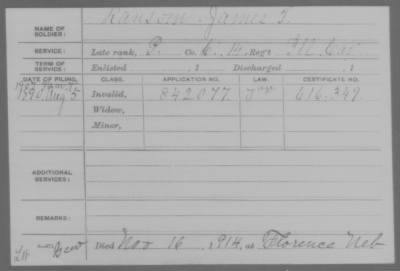 NAME OF SOLDIER: Ransom James
SERVICE: Late rank, P. Co. 14 Reg't Ill Cav
TERM OF SERVICE: Enlisted , 1 Discharged , 1
DATE OF FILING. CLASS. APPLICATION NO. LAW. CERTIFICATE NO.
1890 Aug 5 Invalid, 842077 616.349
Widow,
Minor,
ADDITIONAL SERVICES:
REMARKS:
Died Nov 16, 1914, at Florence Neb